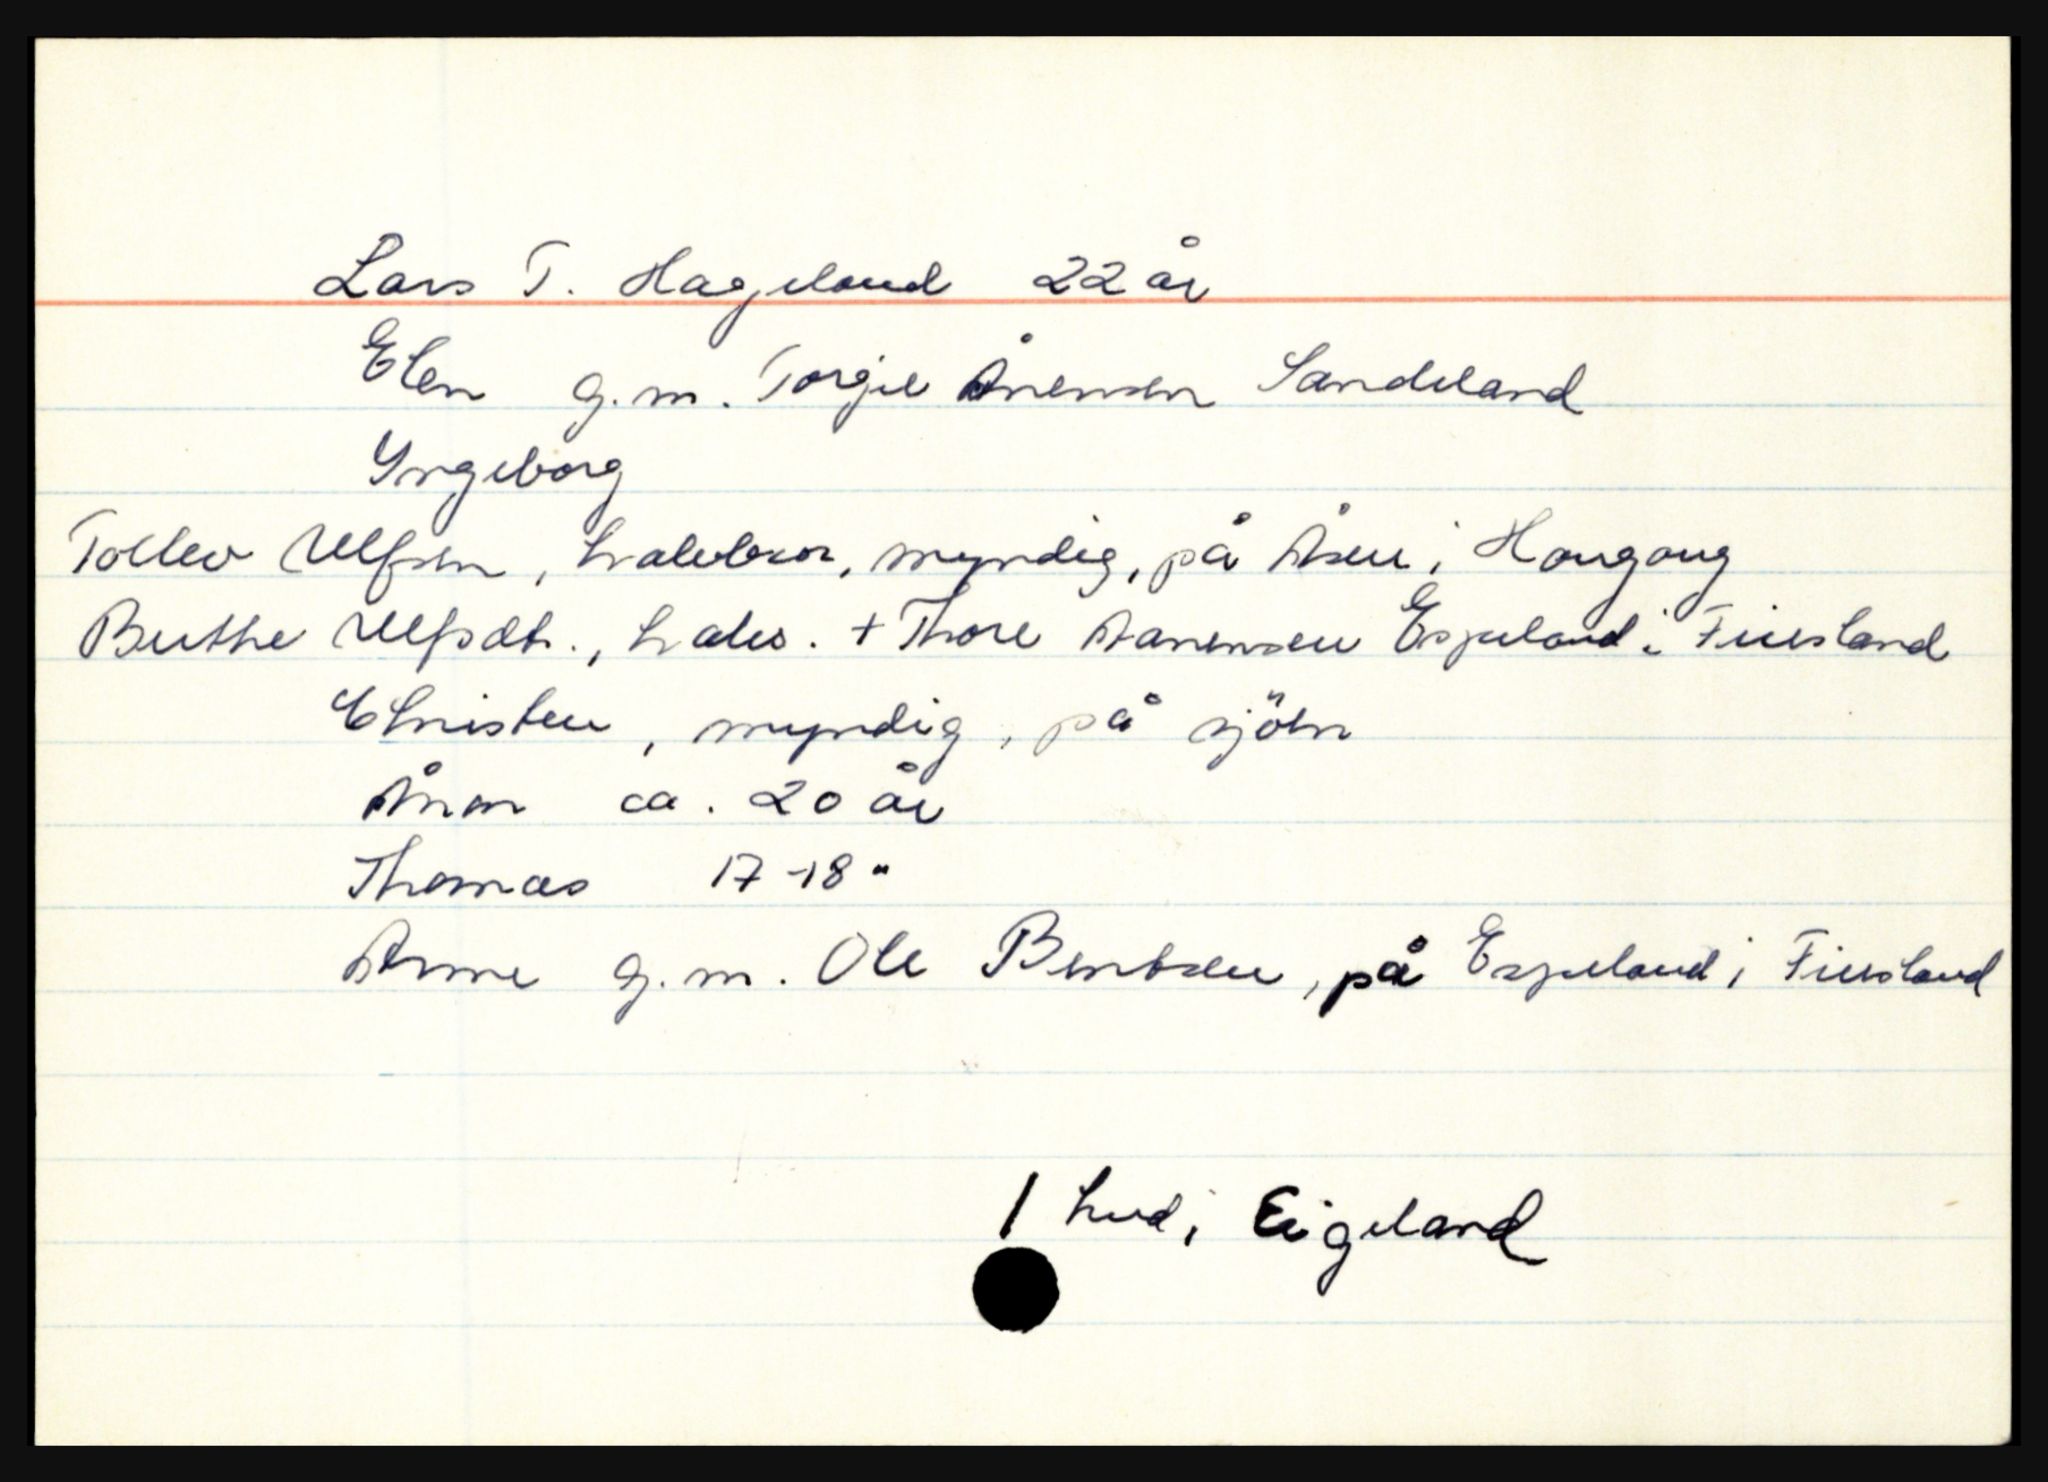 Lars T. Hageland 22 år
Elen g.m. Torgie Ånensen Sandeland
Yngeborg
Tollev Ulfsen, halvbror, myndig, på Åsen i Haugaug
Berthe Ulfsdt., halvs. + Thore Aanensen Espeland i Finsland
Christen, myndig, på sjöen
Ånon ca. 20 år
Thomas 17-18 "
Anne g.m. Ole Bentsen, på Espeland i Finsland
1 hud i Eigeland